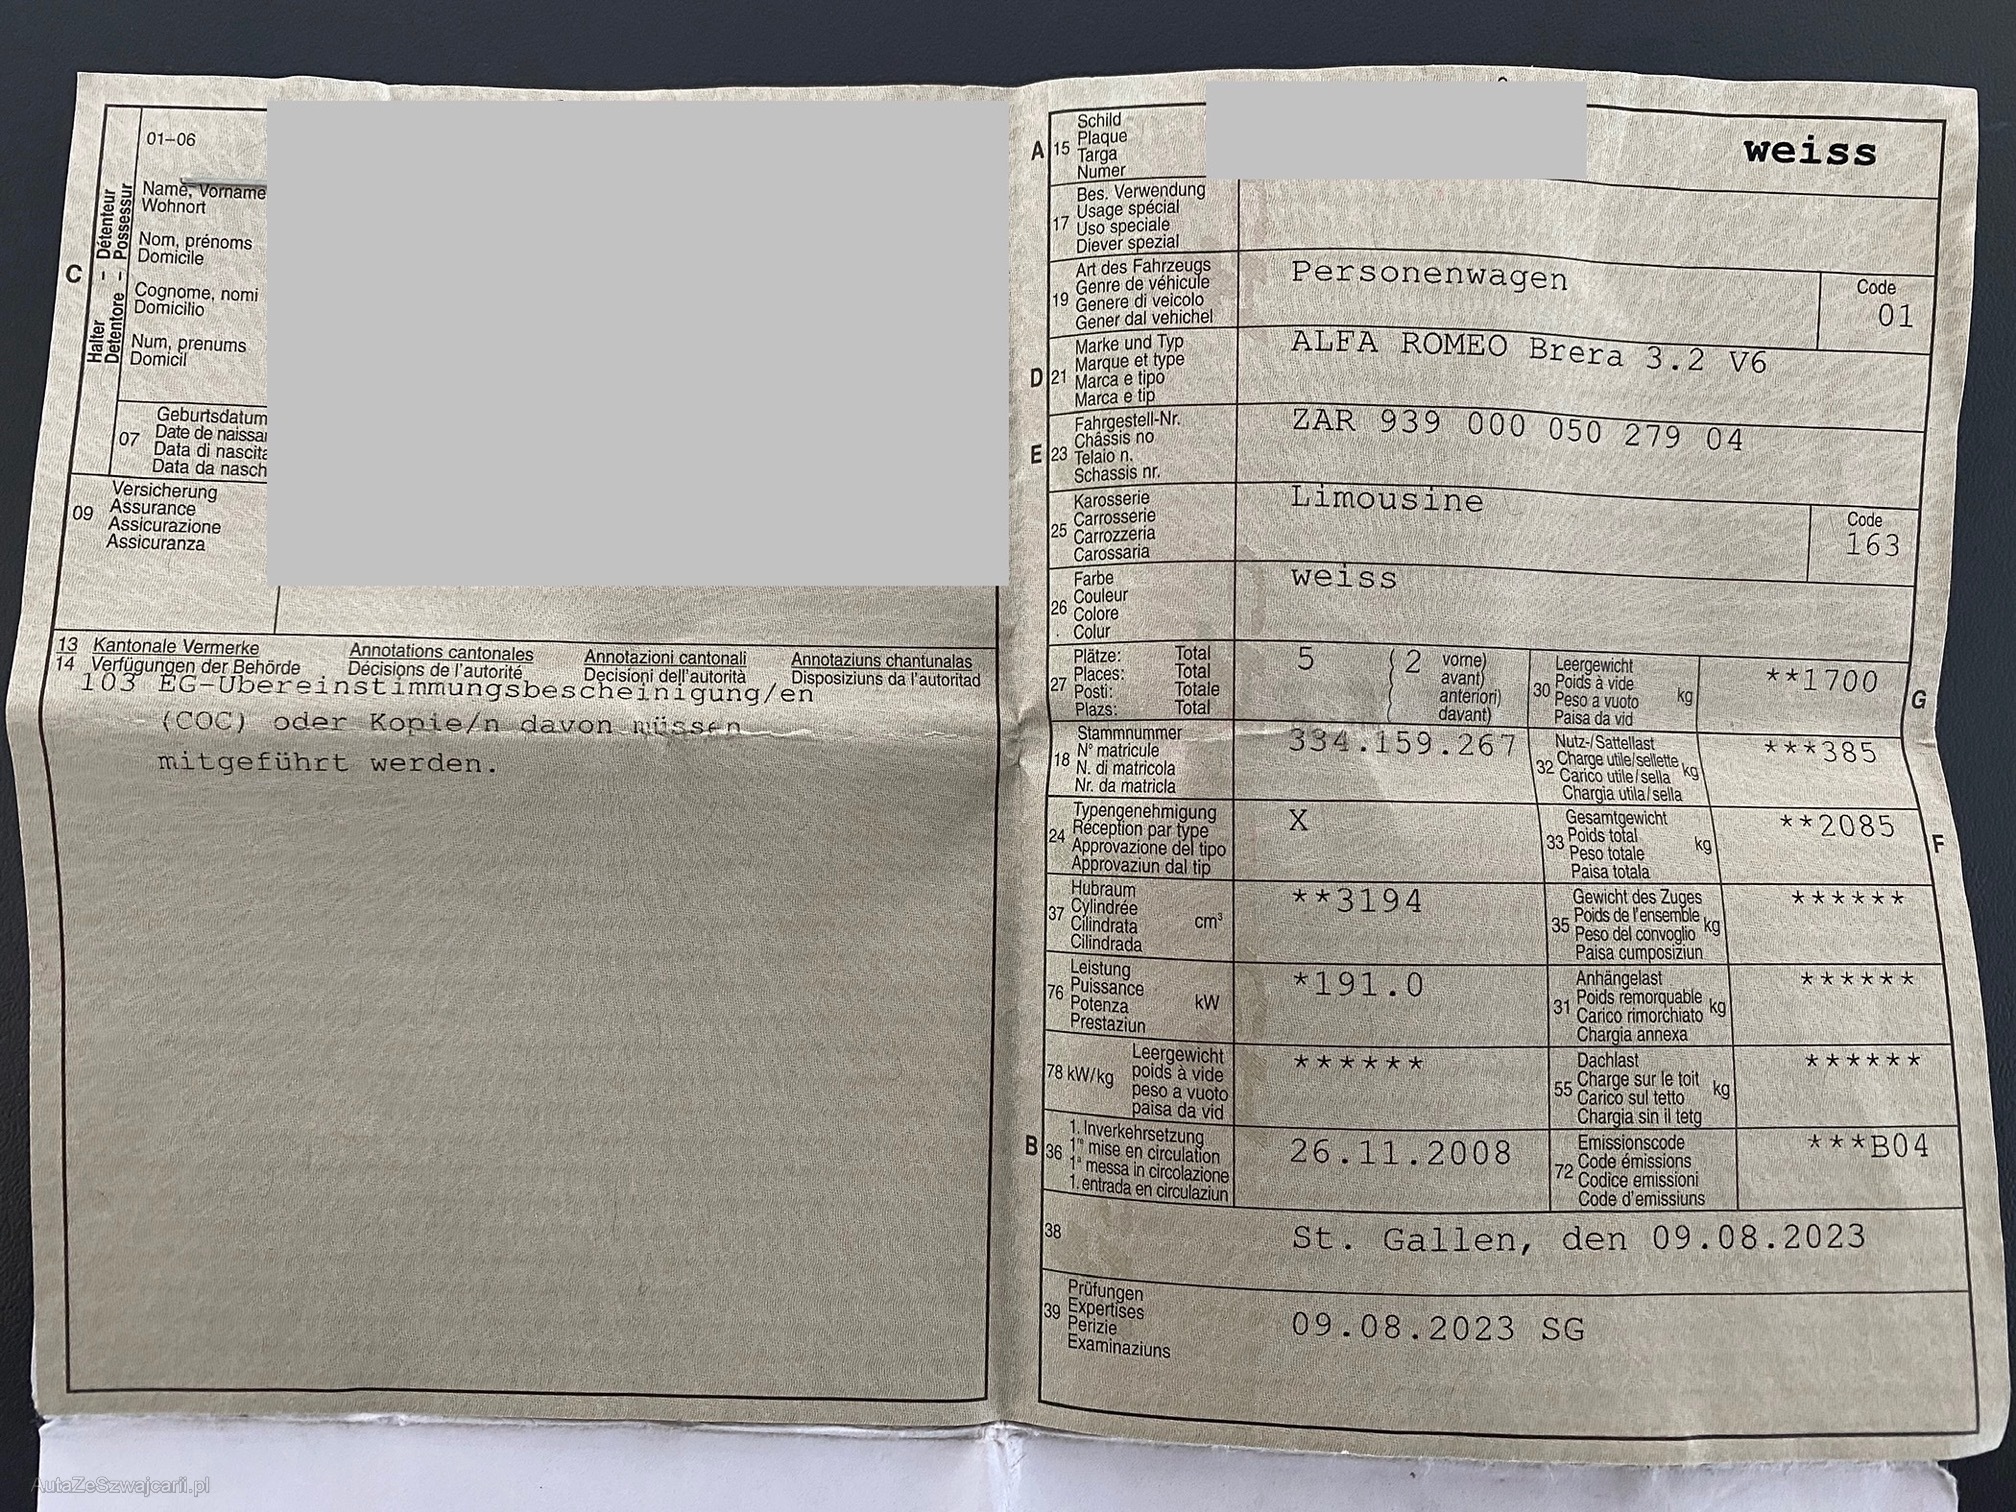 01–06
Halter – Détenteur
Detentore – Possessur
C
Name, Vorname
Wohnort
Nom, prénoms
Domicile
Cognome, nomi
Domicilio
Num, prenums
Domicil
07
Geburtsdatum
Date de naissa
Data di nascita
Data da nasch
09
Versicherung
Assurance
Assicurazione
Assicuranza
13 Kantonale Vermerke Annotations cantonales Annotazioni cantonali Annotaziuns chantunalas
14 Verfügungen der Behörde Décisions de l'autorité Decisioni dell'autorità Disposiziuns da l'autoritad
103 EG-Übereinstimmungsbescheinigung/en
(COC) oder Kopie/n davon müssen
mitgeführt werden.
A 15
Schild
Plaque
Targa
Numer
weiss
17
Bes. Verwendung
Usage spécial
Uso speciale
Diever spezial
19
Art des Fahrzeugs
Genre de véhicule
Genere di veicolo
Gener dal vehichel
Personenwagen
Code
01
D 21
Marke und Typ
Marque et type
Marca e tipo
Marca e tip
ALFA ROMEO Brera 3.2 V6
E 23
Fahrgestell-Nr.
Châssis no
Telaio n.
Schassis nr.
ZAR 939 000 050 279 04
25
Karosserie
Carrosserie
Carrozzeria
Carossaria
Limousine
Code
163
26
Farbe
Couleur
Colore
Colur
weiss
27
Plätze: Total
Places: Total
Posti: Totale
Plazs: Total
5 (2 vorne)
avant)
anteriori)
davant)
30
Leergewicht
Poids à vide
Peso a vuoto
Paisa da vid
kg
**1700
G
18
Stammnummer
N° matricule
N. di matricola
Nr. da matricla
334.159.267
32
Nutz-/Sattellast
Charge utile/sellette
Carico utile/sella
Chargia utila/sella
kg
***385
24
Typengenehmigung
Réception par type
Approvazione del tipo
Approvaziun dal tip
X
33
Gesamtgewicht
Poids total
Peso totale
Paisa totala
kg
**2085
F
37
Hubraum
Cylindrée
Cilindrata
Cilindrada
cm³
**3194
35
Gewicht des Zuges
Poids de l'ensemble
Peso del convoglio
Paisa cumposiziun
kg
******
76
Leistung
Puissance
Potenza
Prestaziun
kW
*191.0
31
Anhängelast
Poids remorquable
Carico rimorchiato
Chargia annexa
kg
******
78 kW/kg
Leergewicht
poids à vide
peso a vuoto
paisa da vid
******
55
Dachlast
Charge sur le toit
Carico sul tetto
Chargia sin il tetg
kg
******
B 36
1. Inverkehrsetzung
1re mise en circulation
1a messa in circolazione
1. entrada en circulaziun
26.11.2008
72
Emissionscode
Code émissions
Codice emissioni
Code d'emissiuns
***B04
38
St. Gallen, den 09.08.2023
39
Prüfungen
Expertises
Perizie
Examinaziuns
09.08.2023 SG
AutaZeSzwajcarii.pl